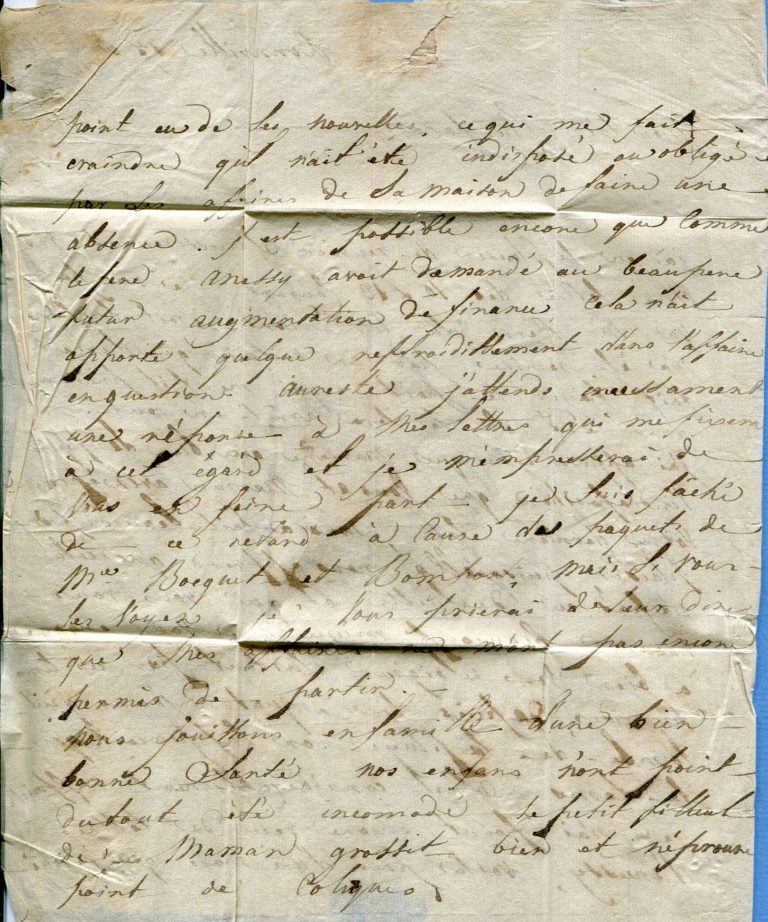 point eu de ses nouvelles, ce qui me fait
craindre qu'il n'ait été indisposé ou obligé
par les affaires de sa maison de faire une
absence. il est possible encore que comme
le pere avait demandé au beaupere
futur augmentation de finance cela n'ait
apporté quelque refroidissement dans l'affaire
en question aureste j'attends incessament
une réponse à mes lettres qui me fixera
à cet égard et je m'empresserai de
vous en faire part je suis fâché
de ce retard à cause des paquets de
Mde Bocquet et Bompart, mais si vous
les voyez je vous prierai de leur dire
que mes affaires ne m'ont pas encore
permis de partir.
nous jouissons en famille d'une bien
bonne santé nos enfans n'ont point
du tout été incomodé le petit filleul
de Maman grossit bien et n'éprouve
point de coliques,